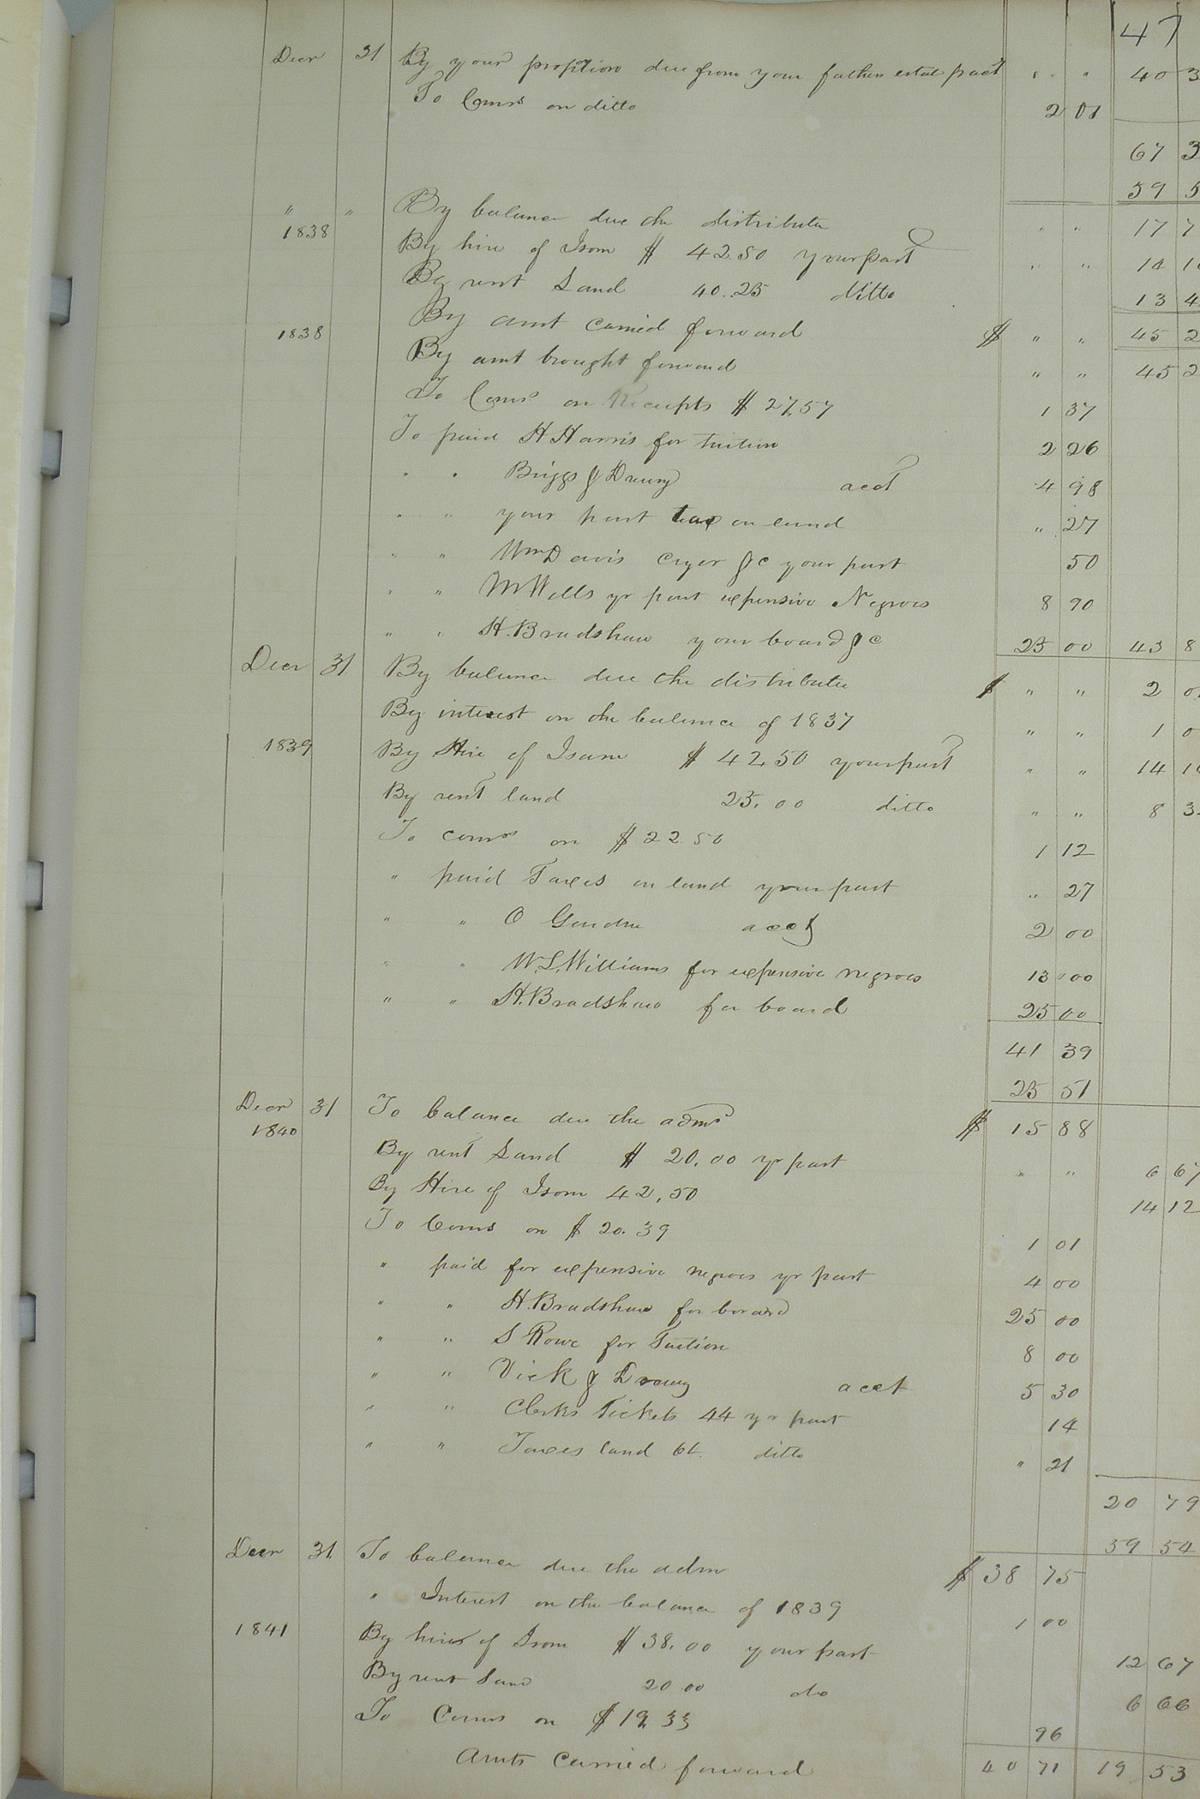 47
Decr 31 By your proption due from your fathers estate part " " 40 3
To Coms on ditto 2 01
67 3
59 5
" " By balance due the distributee " " 17 7
1838 By hire of Isom $ 42.50 your part " " 14 1
By rent Land 40.25 ditto 13 4
By amt carried forward $ " " 45 2
1838 By amt brought forward " " 45 2
To Coms on Receipts $ 27.57 1 37
To paid H Harris for tuition 2 26
" " Briggs & Drewry acct 4 98
" " your part tax on land " 27
" " Wm Davis cryer &c your part 50
" " M Wells yr part expensive Negroes 8 90
" " H. Bradshaw your board &c 25 00 43 8
Decr 31 By balance due the distributee $ " " 2 0
By interest on the balance of 1837 " " 1 0
1839 By Hire of Isam $ 42.50 your part " " 14 1
By rent land 25.00 ditto " " 8 3
To coms on $ 22.50 1 12
" paid Taxes on land your part " 27
" " O acct 2 00
" " W. L. Williams for expensive negroes 13 00
" " H. Bradshaw for board 25 00
41 39
25 51
Decr 31 To balance due the adms $ 15 88
1840 By rent Land $ 20.00 yr part " " 6 67
By Hire of Isom 42.50 14 12
To Coms on $ 20.39 1 01
" paid for expensive negroes yr part 4 00
" " H. Bradshaw for board 25 00
" " S Rowe for Tuition 8 00
" " Vick & Drewry acct 5 30
" " Clerks Tickets 44 yr part 14
" " Taxes land 64. ditto " 21
20 79
59 54
Decr 31 To balance due the adm $ 38 75
" Interest on the balance of 1839 1 00
1841 By hire of Isom $ 38.00 your part 12 67
By rent Land 20 00 do 6 66
To Coms on $ 19.33 96
Amts Carried forward 40 71 19 53